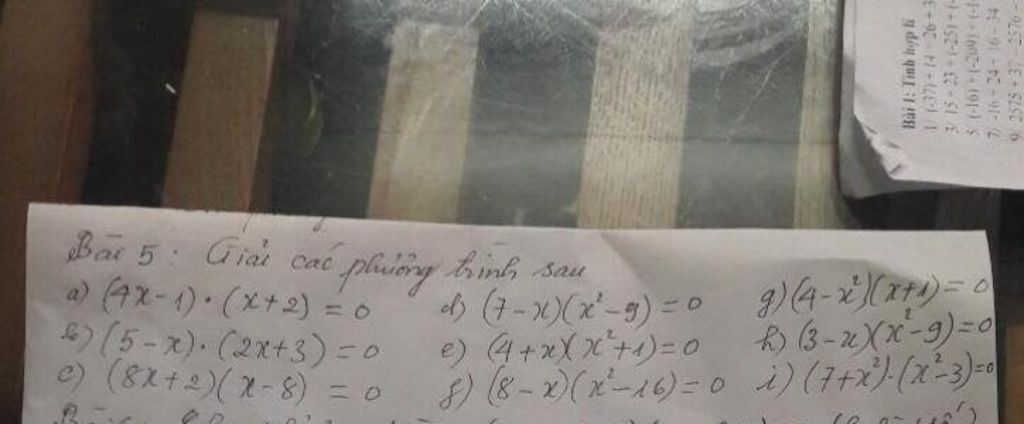 Bài 1: Tính hợp lí
1/ (-37) + 14 + 26 + 3
3/ 15 + 23 + (-25) + (-
5/ (-16) + (-209) + (-1
7/ -16 + 24 + 16 - 34
9/ 2575 + 37 - 2576 -
Bài 5: Giải các phương trình sau
a) (4x-1)·(x+2) = 0 d) (7-x)(x²-9) = 0 g) (4-x²)(x+1) = 0
b) (5-x)·(2x+3) = 0 e) (4+x)(x²+1) = 0 h) (3-x)(x²-9) = 0
c) (8x+2)(x-8) = 0 f) (8-x)(x²-16) = 0 i) (7+x²)·(x²-3) = 0